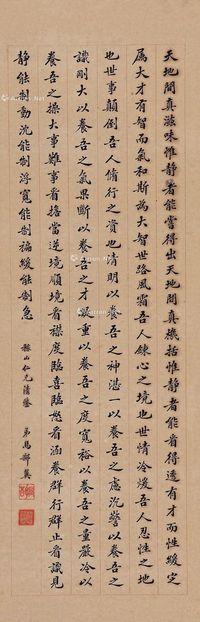 天地間真滋味惟靜者能嘗得出天地間真機括惟靜者能看得透有才而性緩定
屬大才有智而氣和斯為大智世路風霜吾人鍊心之境也世情冷煖吾人忍性之地
也世事顛倒吾人脩行之資也清明以養吾之神湛一以養吾之慮沈警以養吾之
識剛大以養吾之氣果斷以養吾之才凝重以養吾之度寬裕以養吾之量嚴冷以
養吾之操大事難事看擔當逆境順境看襟度臨喜臨怒看涵養群行群止看識見
靜能制動沈能制浮寬能制褊緩能制急
山仁兄清鑒
弟馬鄰翼